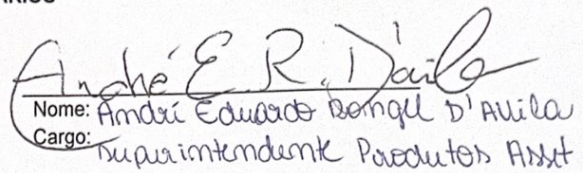 André E. R. D'avila
Nome: André Eduardo D'Avila
Cargo: Superintendente Produtos Asset